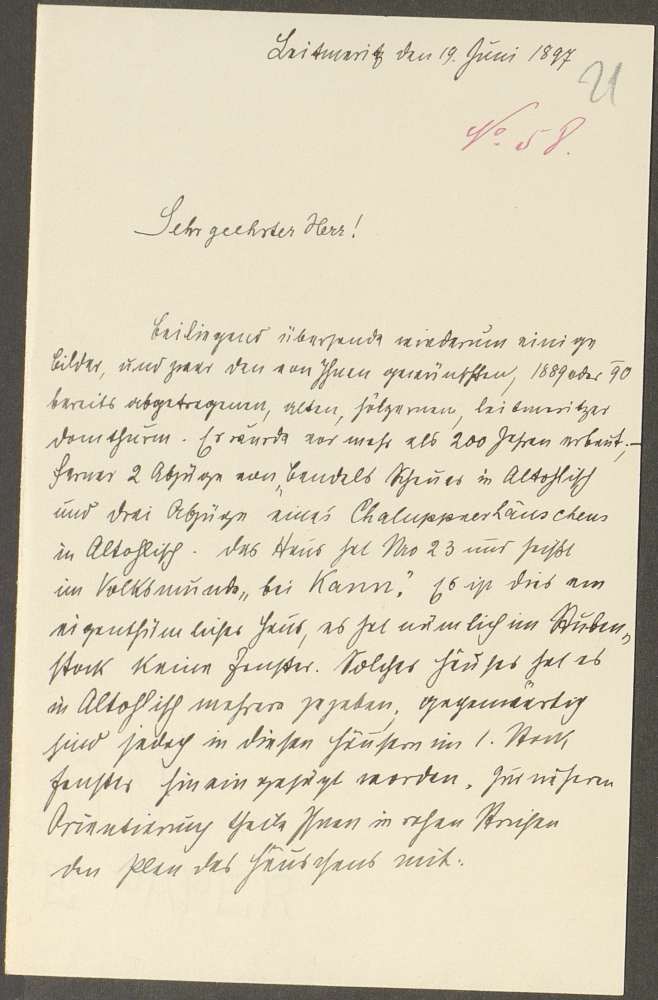 Leitmeritz den 19. Juni 1897
21
No. 58.
Sehr geehrter Herr!
Beiliegend übersende wiederum einige
Bilder, und zwar den von Ihnen gewünschten, 1889 oder 90
bereits abgetragenen, alten, hölzernen, leitmeritzer
Domthurm. Er wurde vor mehr als 200 Jahren erbaut;
ferner 2 Abzüge von „Bendels Scheuer in Altohlisch
und drei Abzüge eines Chaluppnerhäuschens
in Altohlisch. Das Haus hat Nro 23 und heißt
im Volksmunde „bei Kann“. Es ist dies ein
eigenthümliches Haus, es hat nämlich im Stuben-
stock keine Fenster. Solcher Häuser hat es
in Altohlisch mehrere gegeben, gegenwärtig
sind jedoch in diesen Häusern im 1. Stock
Fenster hineingefügt worden. Zur näheren
Orientierung theile Ihnen in rohen Strichen
den Plan des Häuschens mit.